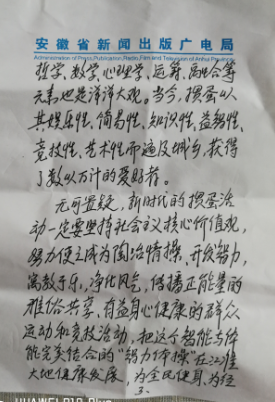 安徽省新闻出版广电局
Administration of Press,Publication,Radio,Film and Television of Anhui Province
哲学、数学、心理学、运筹、融合等
元素也是洋洋大观。当今，掼蛋以
其娱乐性、简易性、知识性、益智性、
竞技性、艺术性而遍及城乡，获得
了数以万计的爱好者。
无可置疑，新时代的掼蛋活
动一定要坚持社会主义核心价值观，
努力使之成为陶冶情操、开发智力，
寓教于乐，净化风气，传播正能量的
雅俗共享，有益身心健康的群众
运动和竞技活动，把这个智能与体
能完美结合的“智力体操”在江淮
大地健康发展，为全民健身、为经
3.
HUAWEI P10 Plus